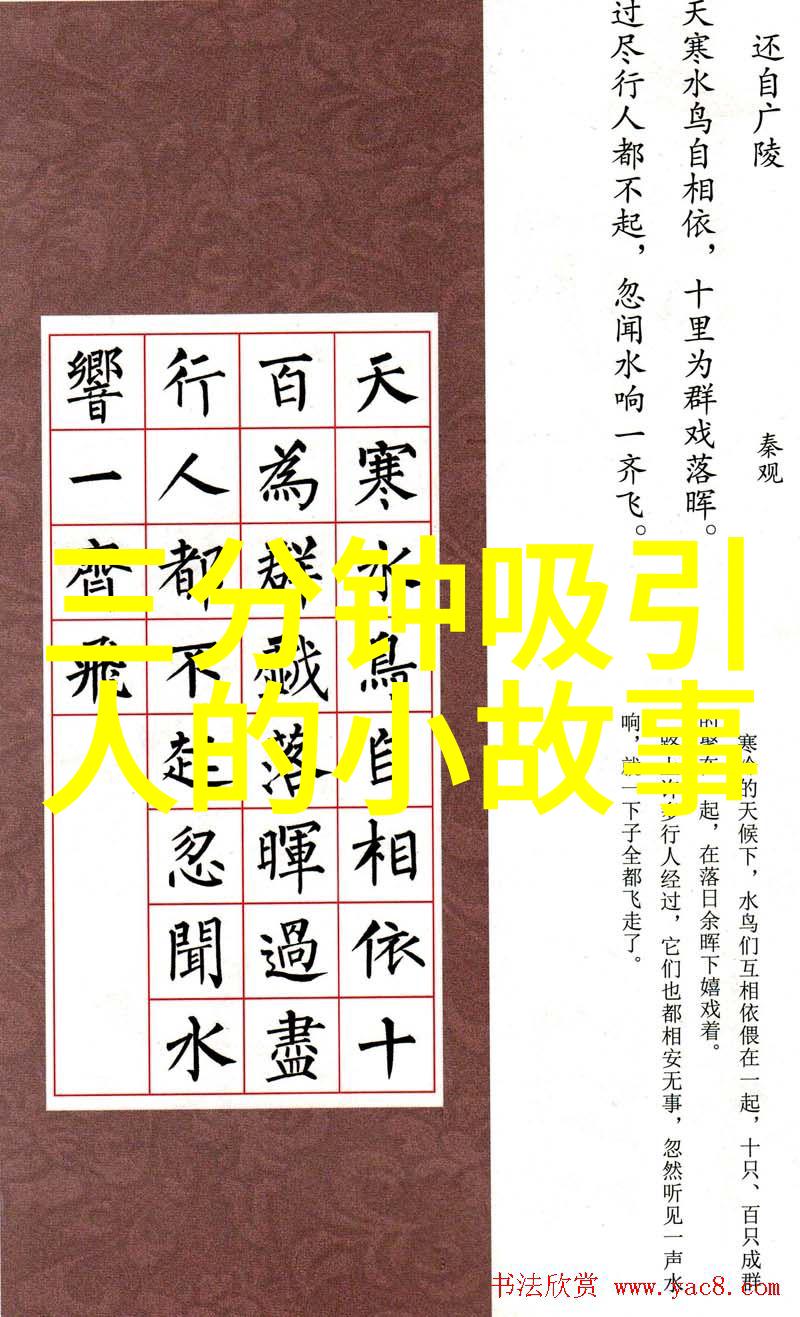 还自广陵
秦观
天寒水鸟自相依，十里为群戏落晖。
过尽行人都不起，忽闻水响一齐飞。
天寒水鳥自相依十
百為群戲落暉過盡
行人都不起忽聞水
響一齊飛
三分钟吸引
人的小故事
寒冷的天候下，水鸟们互相依偎在一起，十只、百只成群
的聚在一起，在落日余晖下嬉戏着。
路上许多行人经过，它们也都相安无事，忽然听见一声水
响，就一下子全都飞走了。
书法欣赏 www.yac8.com